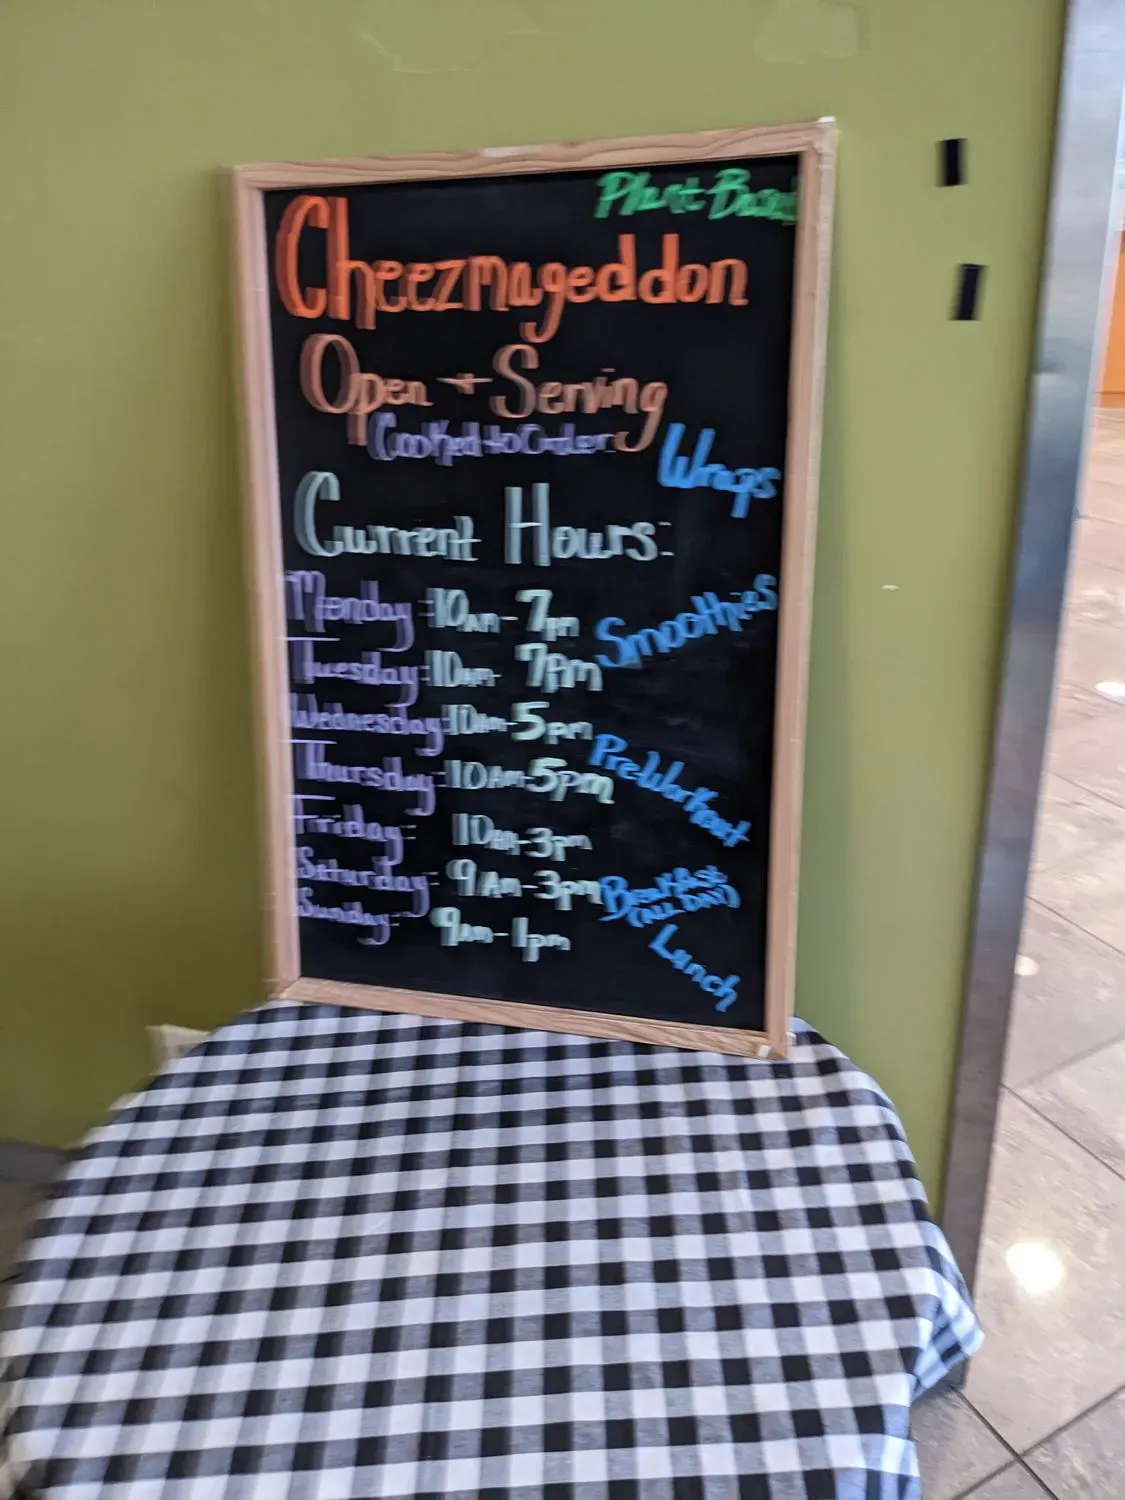 Plant Based
Cheezmageddon
Open + Serving
Cooked to Order
Wraps
Current Hours:
Monday: 10am - 7pm
Smoothies
Tuesday: 10am - 7pm
Wednesday: 10am - 5pm
PreWorkout
Thursday: 10Am - 5pm
Friday: 10am - 3pm
Saturday: 9Am - 3pm
Breakfast
(ALL DAY)
Sunday: 9am - 1pm
Lunch